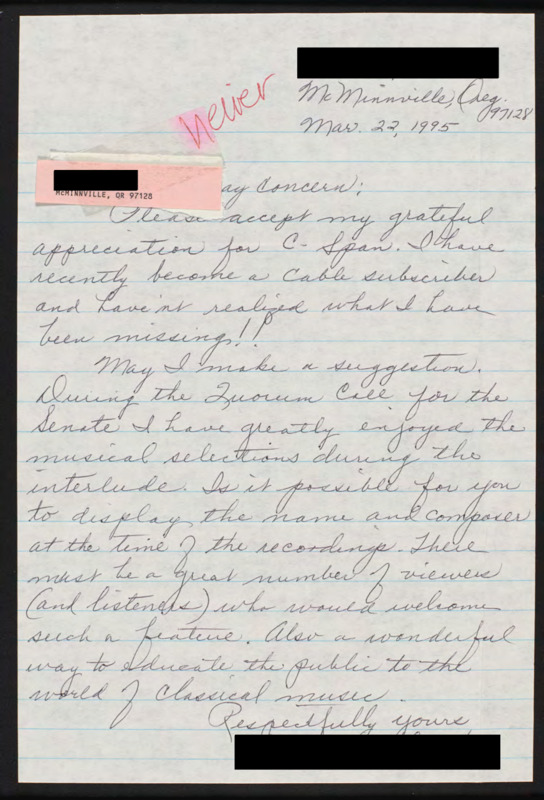 McMinnville, Oreg.
97128
Mar. 22, 1995
MCMINNVILLE, OR 97128
ay Concern:
Please accept my grateful
appreciation for C-Span. I have
recently become a cable subscriber
and have'nt realized what I have
been missing!!
May I make a suggestion.
During the Quorum Call for the
Senate I have greatly enjoyed the
musical selections during the
interlude. Is it possible for you
to display the name and composer
at the time of the recordings. There
must be a great number of viewers
(and listeners) who would welcome
such a feature. Also a wonderful
way to educate the public to the
world of classical music.
Respectfully yours,